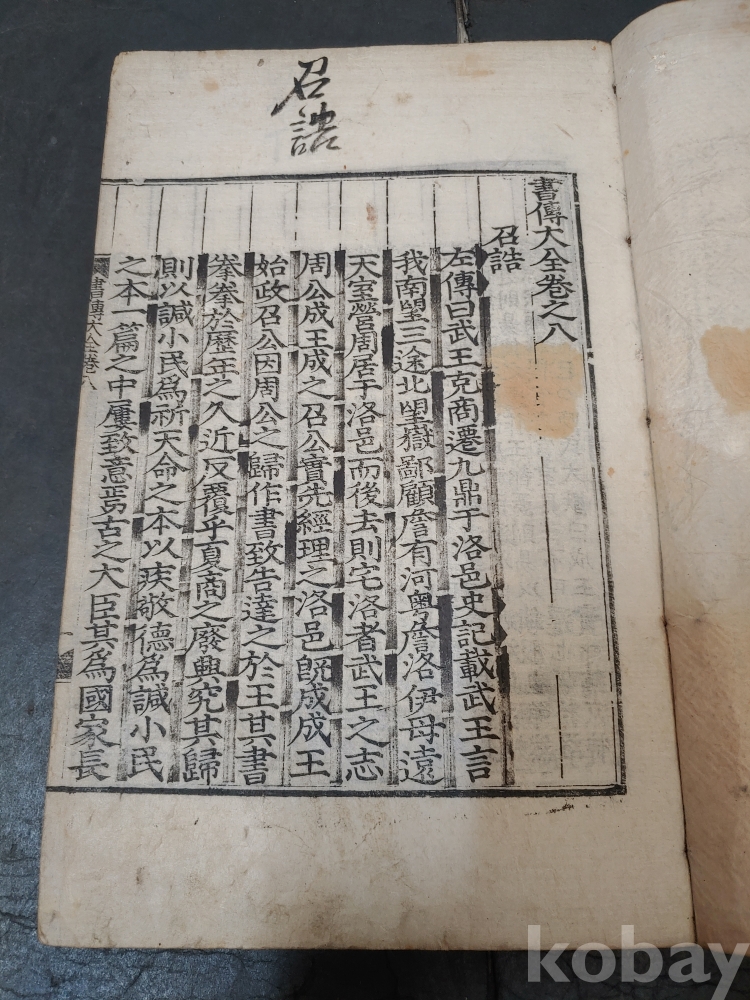 召誥
書傳大全卷之八
召誥
左傳曰武王克商遷九鼎于洛邑史記載武王言
我南望三途北望嶽鄙顧詹有河粵詹洛伊毋遠
天室營周居于洛邑而後去則宅洛者武王之志
周公成王成之召公實先經理之洛邑旣成成王
始政召公因周公之歸作書致告達之於王其書
拳拳於歷年之久近反覆乎夏商之廢興究其歸
則以諴小民爲祈天命之本以疾敬德爲諴小民
之本一篇之中屢致意焉古之大臣其爲國家長
書傳大全卷八
一
kobay